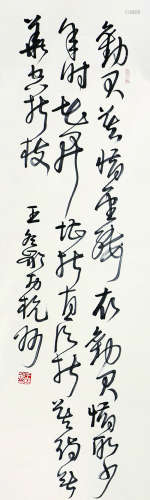 勸君莫惜金縷衣勸君惜取少
年时花开堪折直须折莫待無
花空折枝
王冬龄 杭州